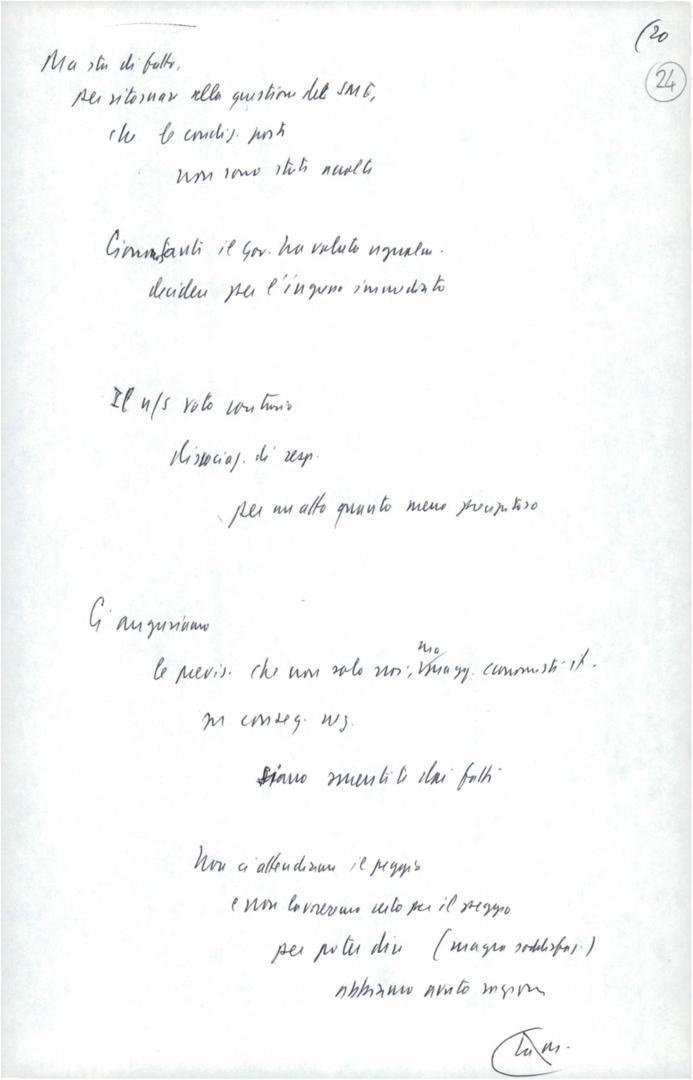 (20
24
Ma sta di fatto,
per ritornar alla questione del SME,
che le condiz. poste
non sono state accolte
Ciononostanti il Gov. ha voluto ugualm.
decidere per l'ingresso immediato
Il n/s voto contrario
dissociaz. di resp.
per un atto quanto meno precipitoso
Ci auguriamo
le previs. che non solo noi, ma magg. economisti it.
su conseg. neg.
siano smentite dai fatti
Non ci attendiamo il peggio
e non lavoreremo certo per il peggio
per poter dire (magra soddisfaz.)
abbiamo avuto ragione